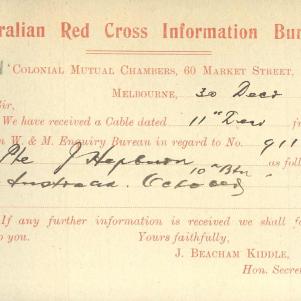 ralian Red Cross Information Bur
COLONIAL MUTUAL CHAMBERS, 60 MARKET STREET,
MELBOURNE, 30 Decr
ir,
We have received a Cable dated 11" Decr f
n W. & M. Enquiry Bureau in regard to No 911
Pte J Hepburn 10" Btn as foll
October
If any further information is received we shall fo
o you. Yours faithfully,
J. BEACHAM KIDDLE,
Hon. Secret